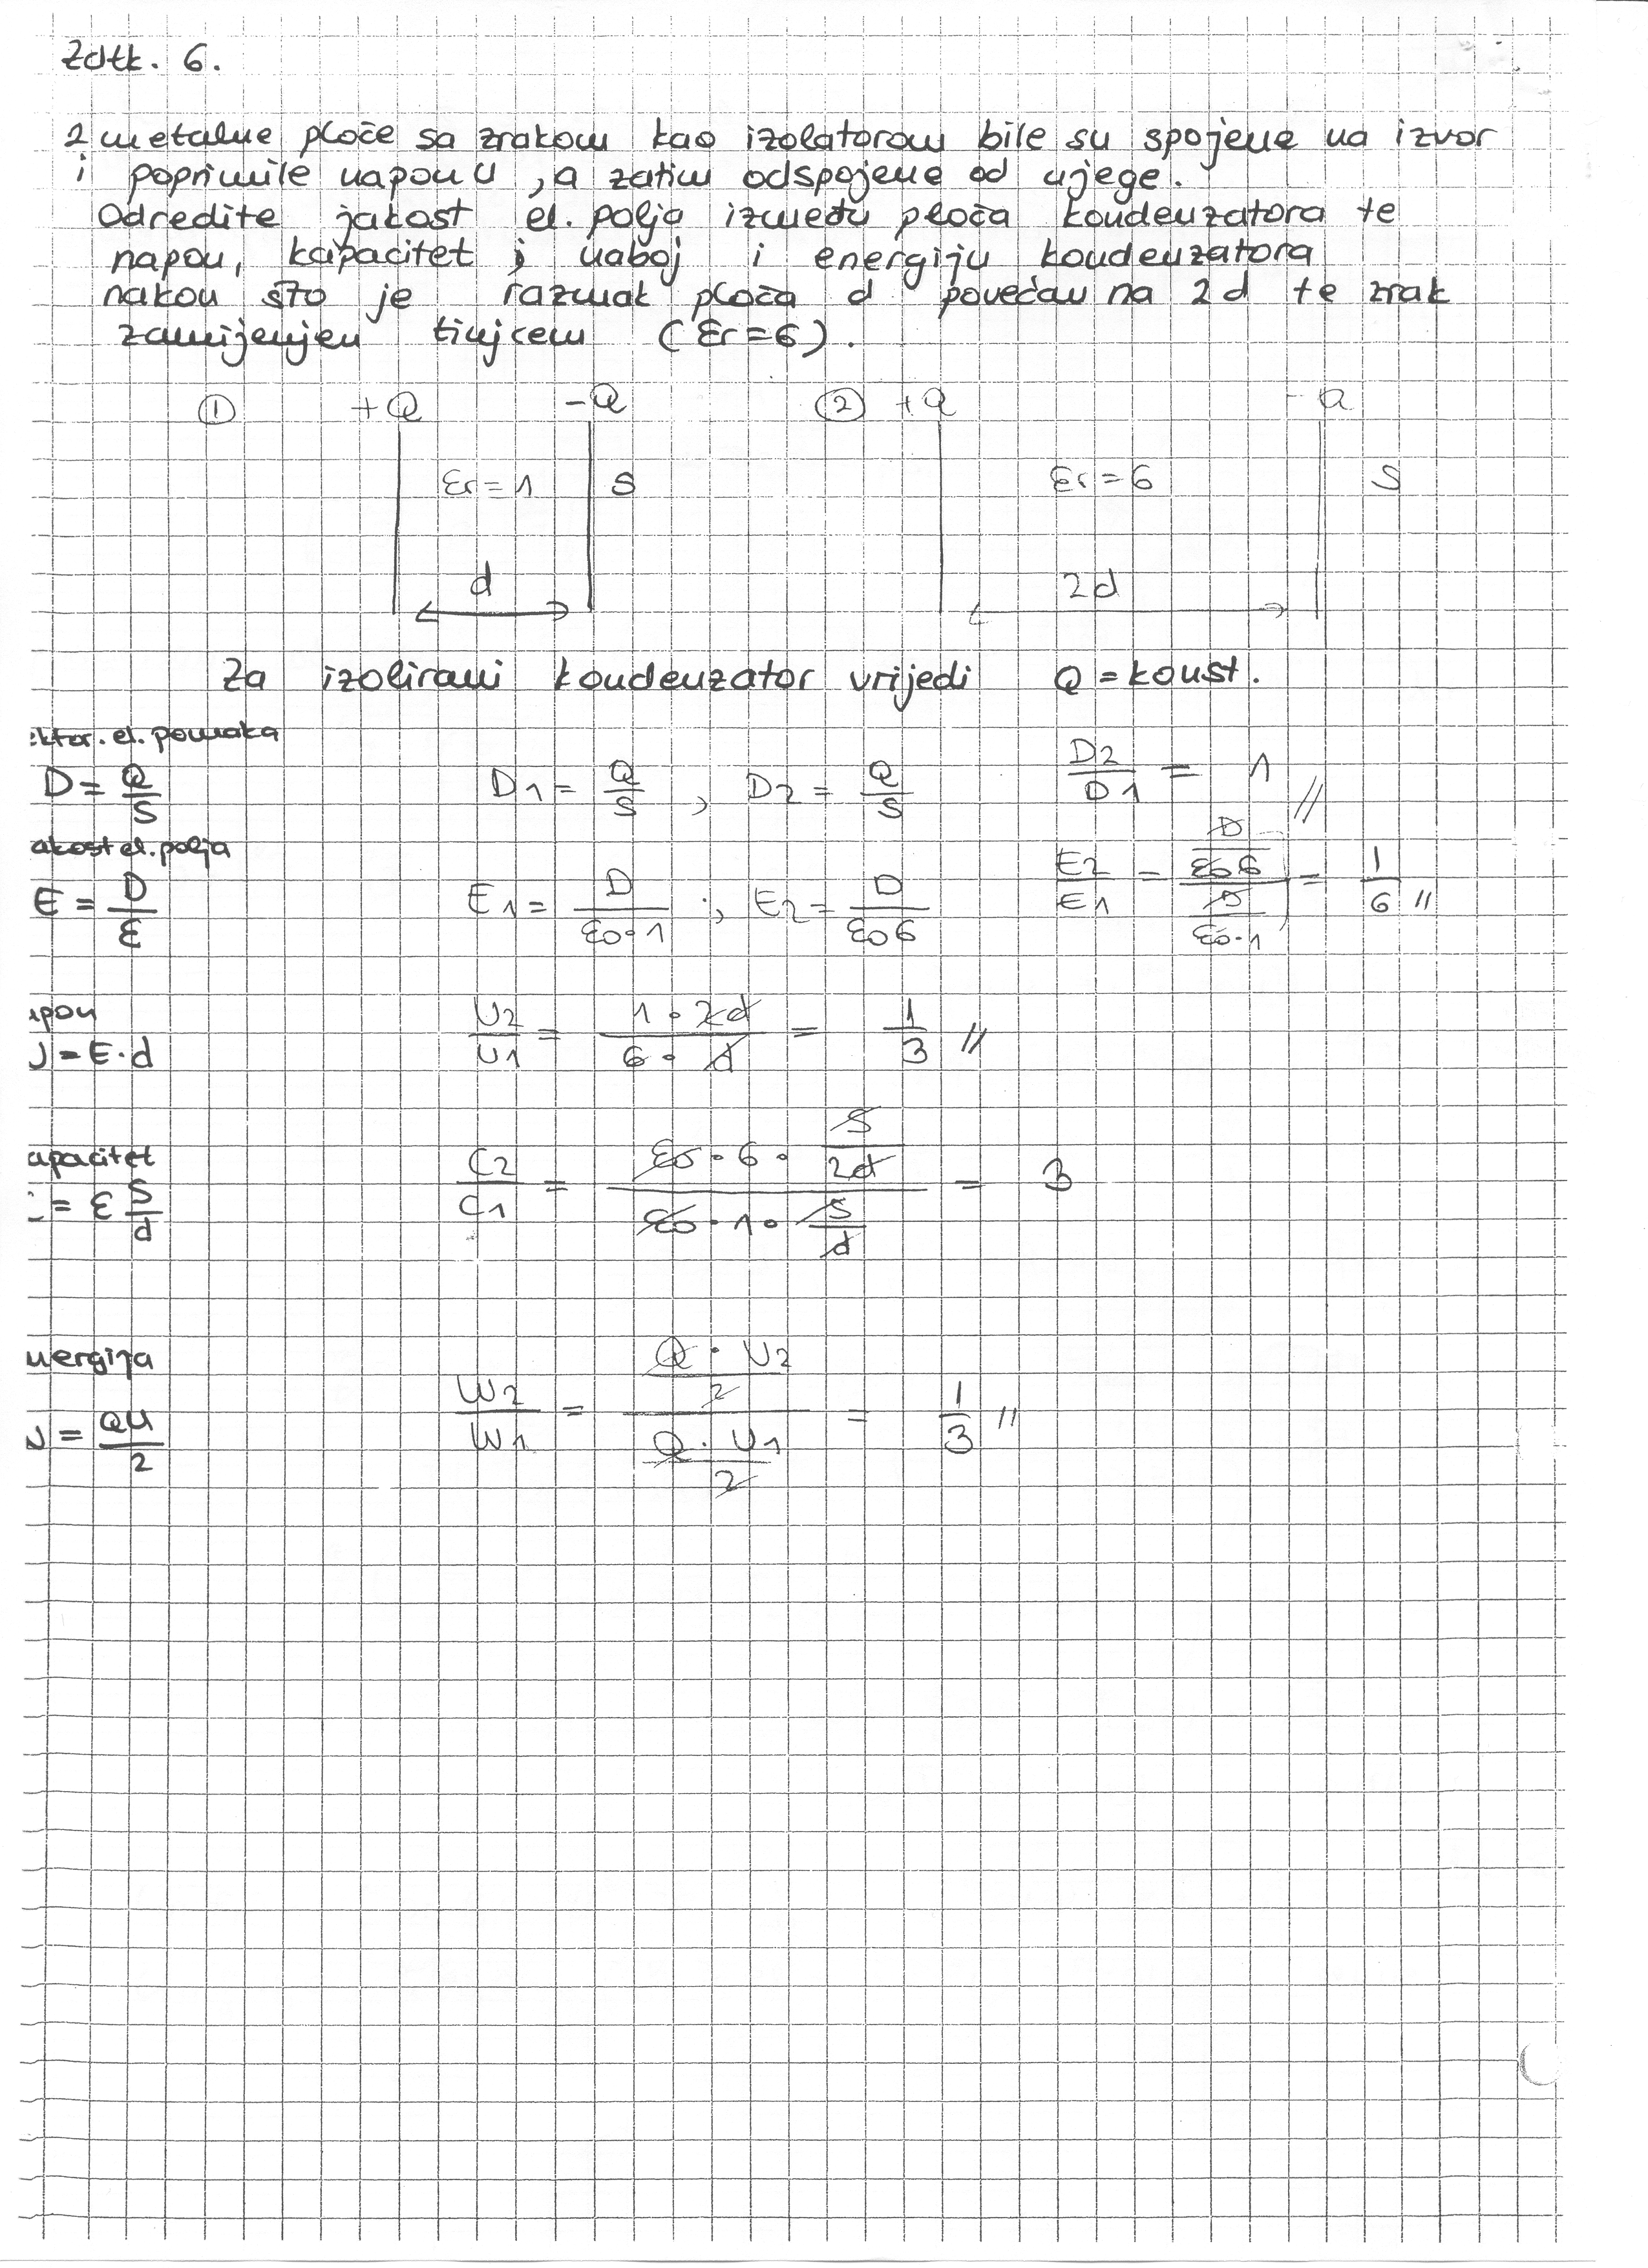 Zdtk. 6.
2 metalne ploče sa zrakom kao izolatorom bile su spojene na izvor
i poprimile napon U, a zatim odspojene od njega.
Odredite jakost el. polja između ploča kondenzatora te
napon, kapacitet i naboj i energiju kondenzatora
nakon što je razmak ploča d povećan na 2d te zrak
zamijenjen tinjcem (Er=6).
① +Q -Q ② +Q -Q
Er=1 S Er=6 S
d 2d
Za izolirani kondenzator vrijedi Q = konst.
ektor. el. pomaka
D = Q/S D1 = Q/S , D2 = Q/S D2/D1 = 1 //
akost el. polja
E = D/ε E1 = D/(ε0·1) ; E2 = D/(ε0 6) E2/E1 = (D/(ε0 6))/(D/(ε0·1)) = 1/6 //
apon
U = E·d U2/U1 = (1·2d)/(6·d) = 1/3 //
apacitet
C = ε S/d C2/C1 = (ε0·6·S/2d)/(ε0·1·S/d) = 3
nergija
W = QU/2 W2/W1 = (Q·U2/2)/(Q·U1/2) = 1/3 //